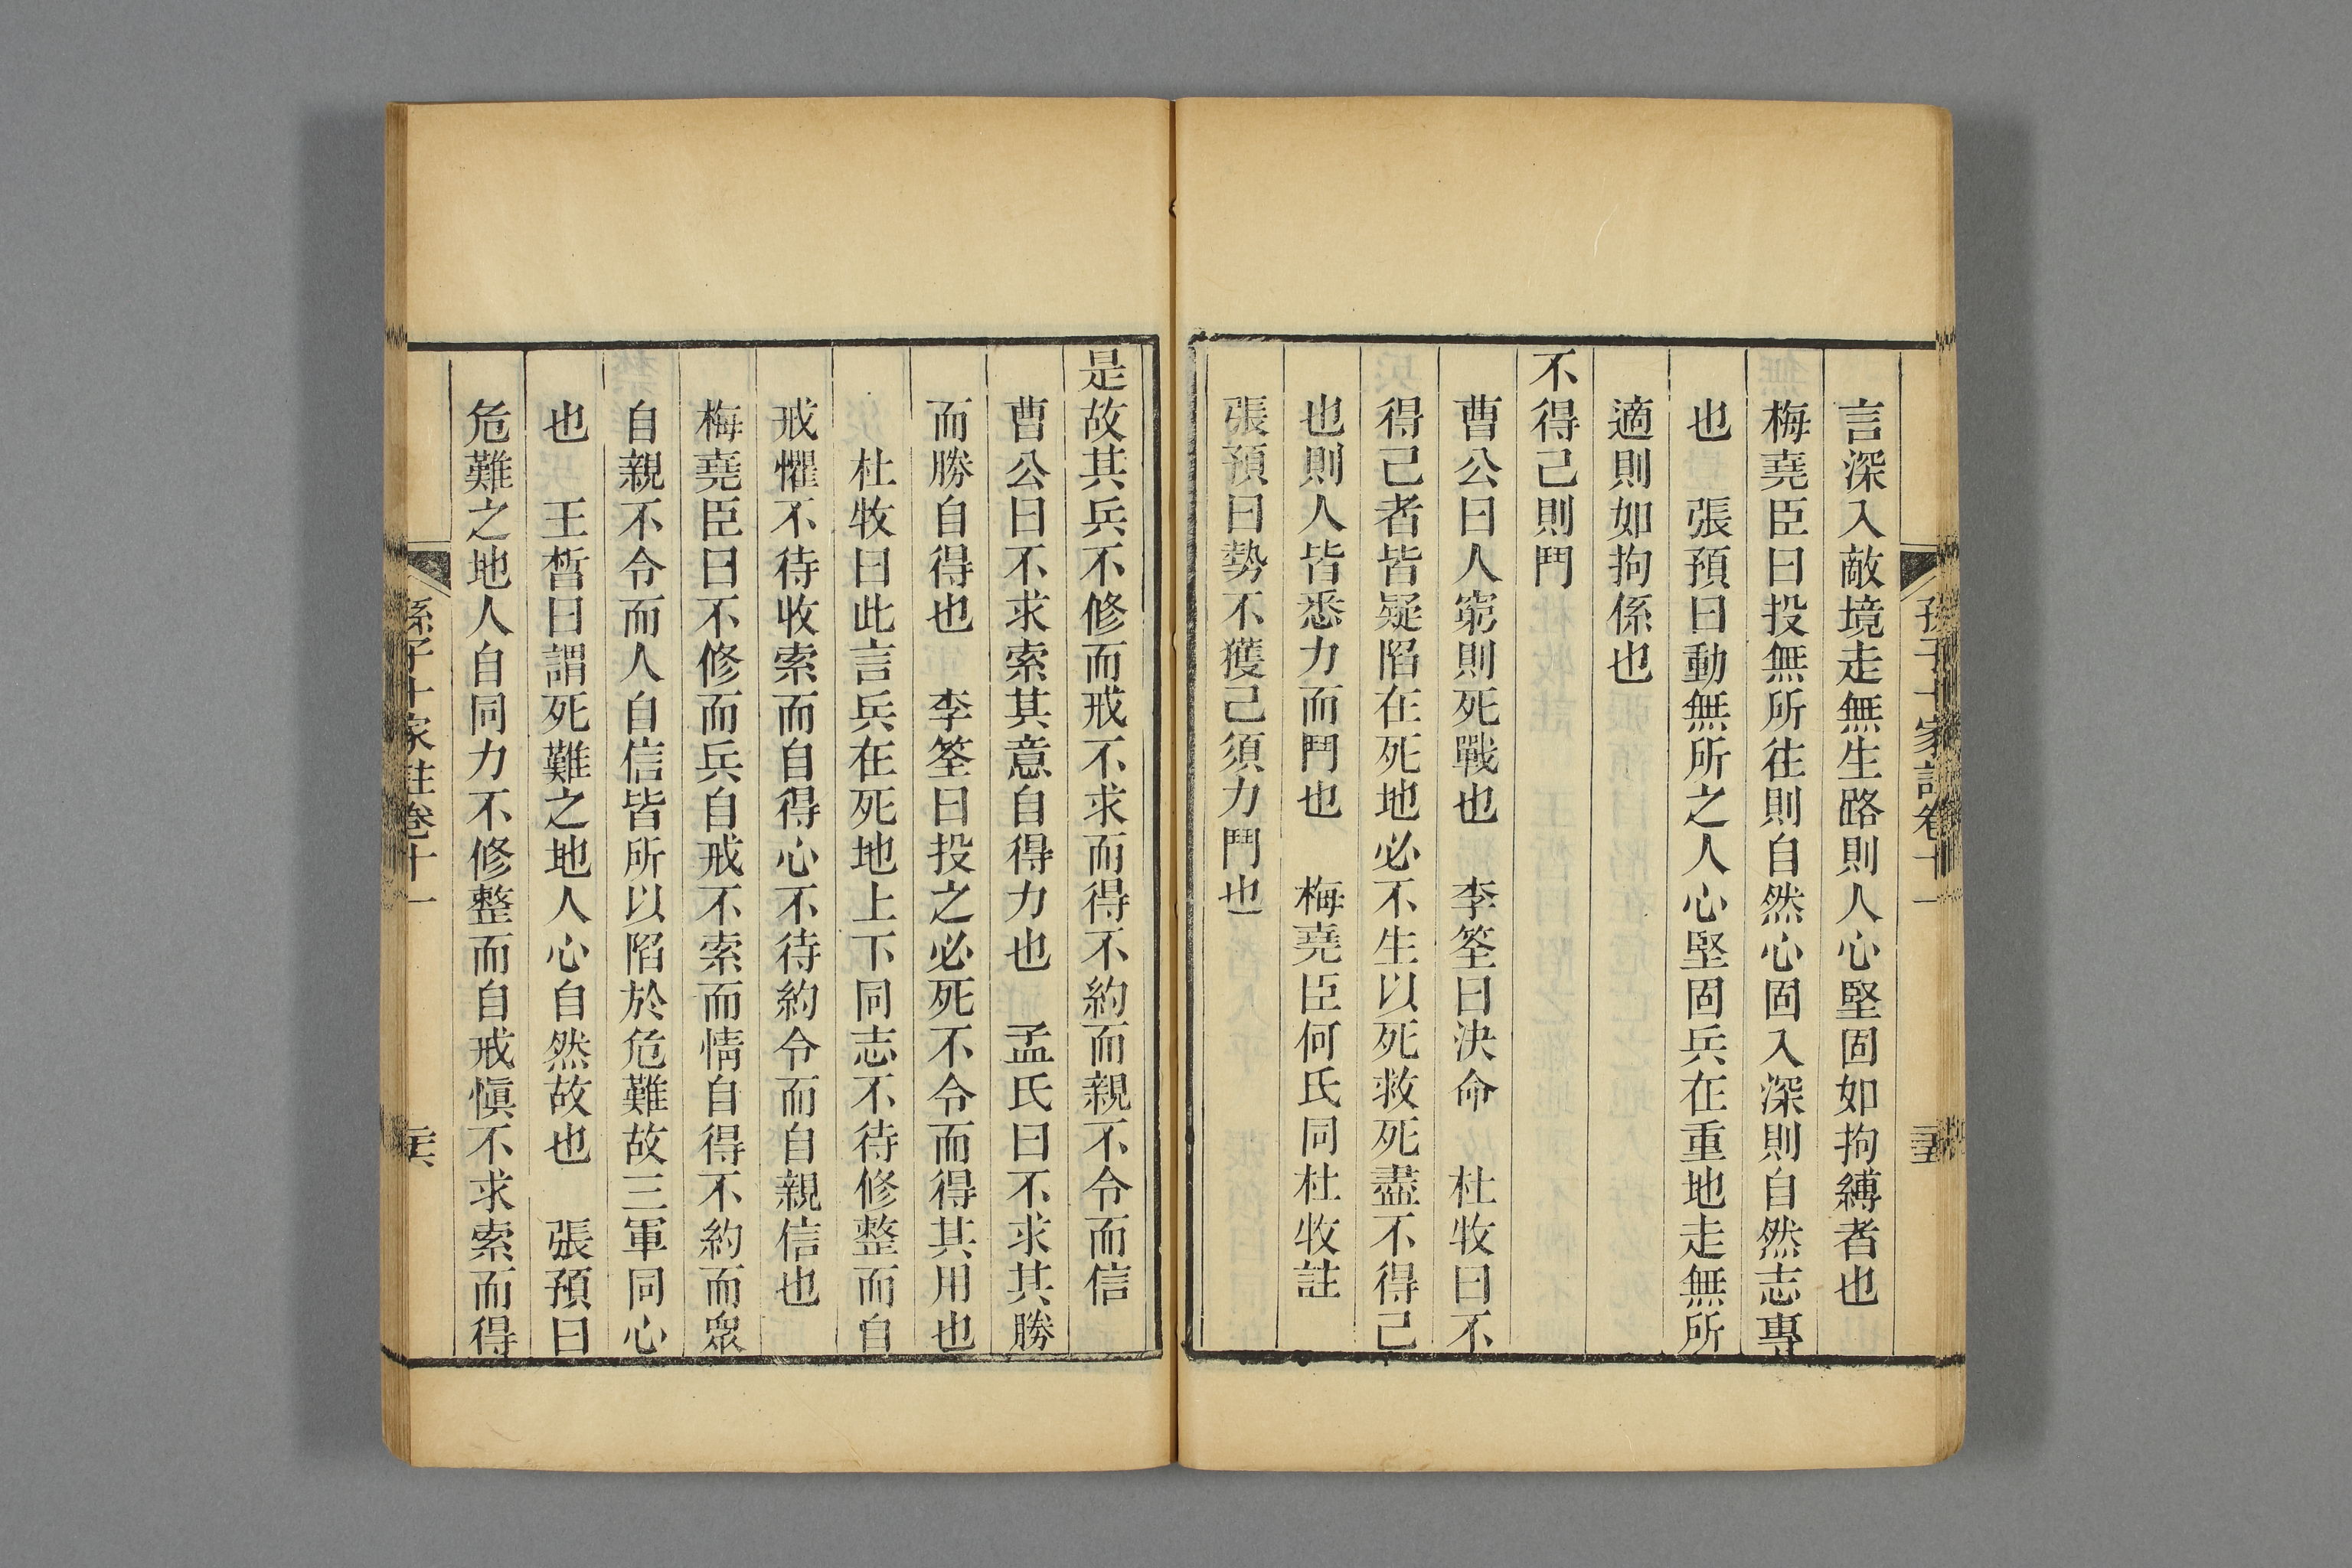 孫子十家註卷十一
言深入敵境走無生路則人心堅固如拘縛者也
梅堯臣曰投無所往則自然心固入深則自然志專
也　張預曰動無所之人心堅固兵在重地走無所
適則如拘係也
不得已則鬥
曹公曰人窮則死戰也　李筌曰決命　杜牧曰不
得已者皆疑陷在死地必不生以死救死盡不得已
也則人皆悉力而鬥也　梅堯臣何氏同杜牧註
張預曰勢不獲已須力鬥也
是故其兵不修而戒不求而得不約而親不令而信
曹公曰不求索其意自得力也　孟氏曰不求其勝
而勝自得也　李筌曰投之必死不令而得其用也
杜牧曰此言兵在死地上下同志不待修整而自
戒懼不待收索而自得心不待約令而自親信也
梅堯臣曰不修而兵自戒不索而情自得不約而眾
自親不令而人自信皆所以陷於危難故三軍同心
也　王晳曰謂死難之地人心自然故也　張預曰
危難之地人自同力不修整而自戒慎不求索而得
孫子十家註卷十一